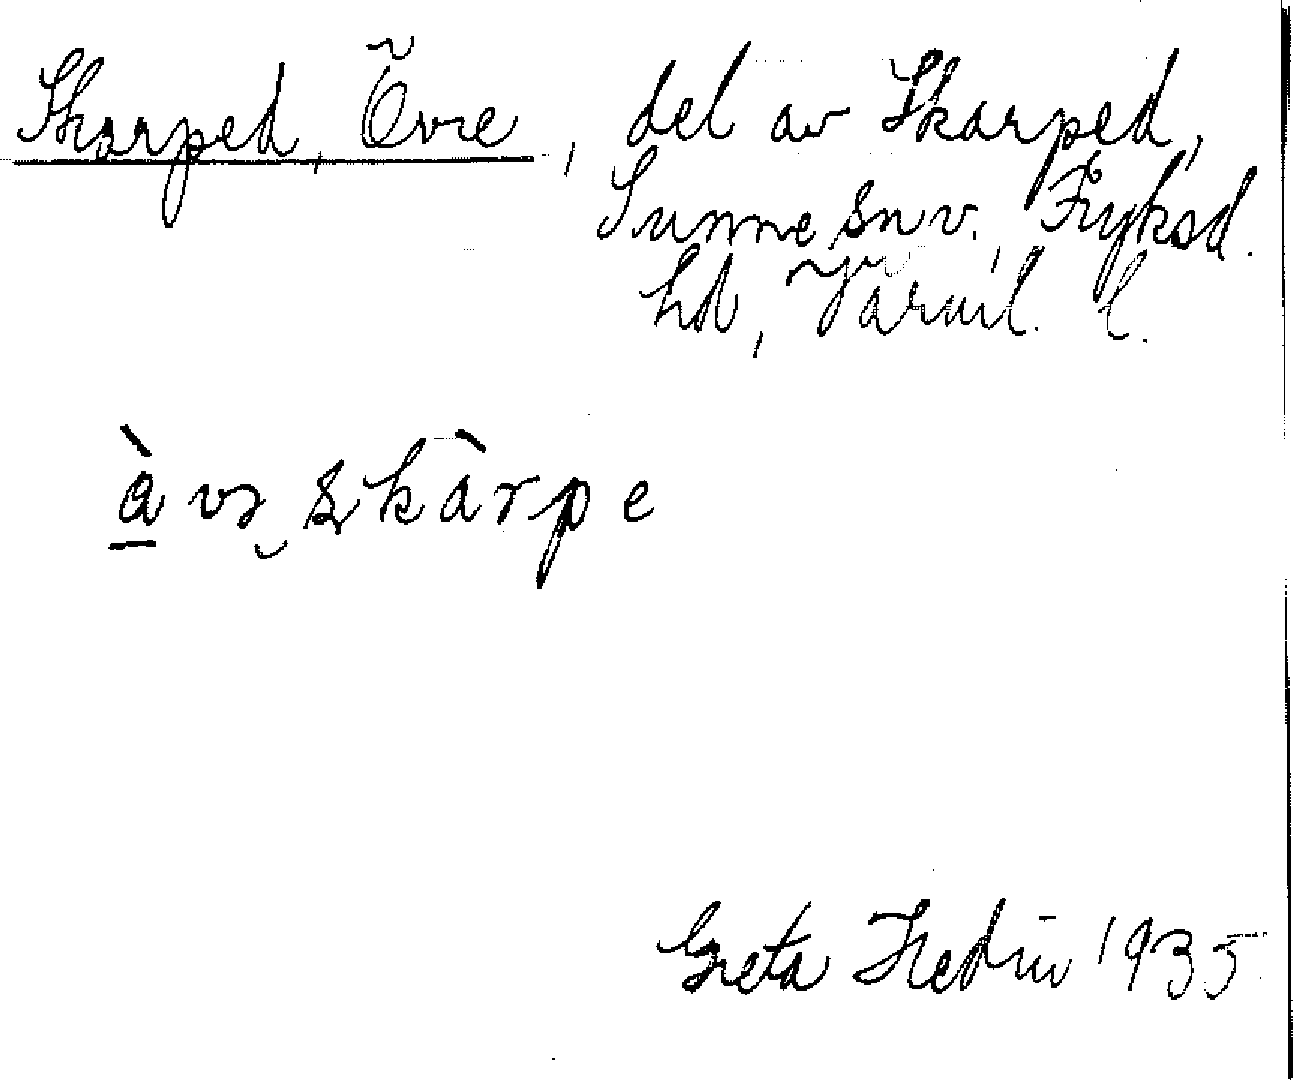 Skarped, Övre, del av Skarped,
Sunne snv., Fryksd.
hd, Värml. l.
à və skàrpe
Greta Hedin 1935